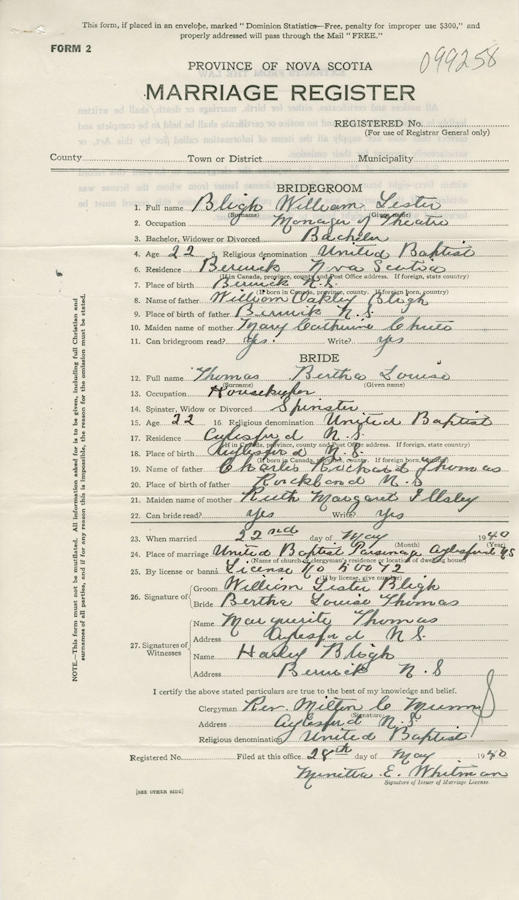 This form, if placed in an envelope, marked "Dominion Statistics—Free, penalty for improper use $300," and
properly addressed will pass through the Mail "FREE."
FORM 2
099258
PROVINCE OF NOVA SCOTIA
MARRIAGE REGISTER
REGISTERED No.
(For use of Registrar General only)
County Town or District Municipality
BRIDEGROOM
1. Full name Bligh William Lester
(Surname) (Given name)
2. Occupation Manager of Theatre
3. Bachelor, Widower or Divorced Bachelor
4. Age 22 5. Religious denomination United Baptist
6. Residence Berwick Nova Scotia
(If in Canada, province, county and Post Office address. If foreign, state country)
7. Place of birth Berwick N.S.
(If born in Canada, province, county. If foreign born, country)
8. Name of father William Oakley Bligh
9. Place of birth of father Berwick N.S.
10. Maiden name of mother Mary Catherine Chute
11. Can bridegroom read? Yes. Write? yes
BRIDE
12. Full name Thomas Bertha Louise
(Surname) (Given name)
13. Occupation Housekeeper
14. Spinster, Widow or Divorced Spinster
15. Age 22 16. Religious denomination United Baptist
17. Residence Aylesford N.S.
(If in Canada, province, county and Post Office address. If foreign, state country)
18. Place of birth Aylesford N.S.
(If born in Canada, province, county. If foreign born, country)
19. Name of father Charles Thomas
20. Place of birth of father Rockland N.S
21. Maiden name of mother Ruth Margaret Illsley
22. Can bride read? yes Write? Yes
23. When married 22nd day of May 1940
(Month) (Year)
24. Place of marriage United Baptist Parsonage Aylesford NS
(Name of church or clergyman's residence or location of dwelling house)
25. By license or banns License No 20072
(If by license, give number)
26. Signature of Groom William Lester Bligh
Bride Bertha Louise Thomas
27. Signatures of Witnesses
Name Marguerite Thomas
Address Aylesford N.S.
Name Harley Bligh
Address Berwick N.S
I certify the above stated particulars are true to the best of my knowledge and belief.
Clergyman Rev. Milton C Munro
(Signature)
Address Aylesford N.S.
Religious denomination United Baptist
Registered No. Filed at this office 28th day of May 1940
Minetta E. Whitman
Signature of Issuer of Marriage License
[SEE OTHER SIDE]
NOTE.—This form must not be mutilated. All information asked for is to be given, including full Christian and
surnames of all parties, and if for any reason this is impossible, the reason for the omission must be stated.